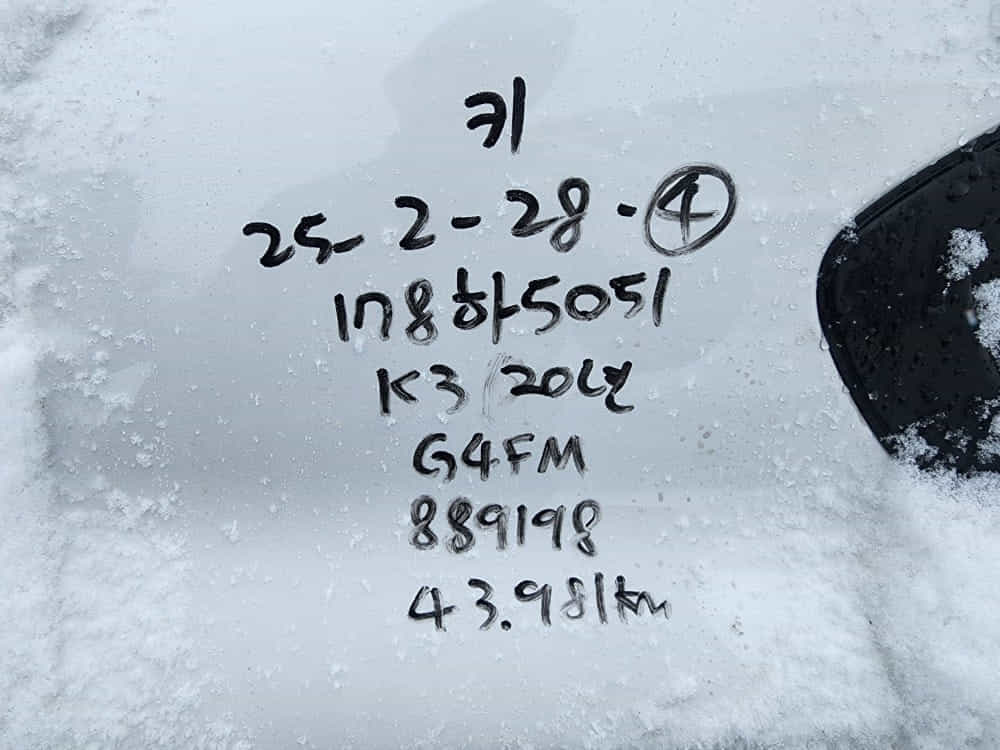 키
25-2-28.④
178하5051
K3 20년
G4FM
889198
43.981km